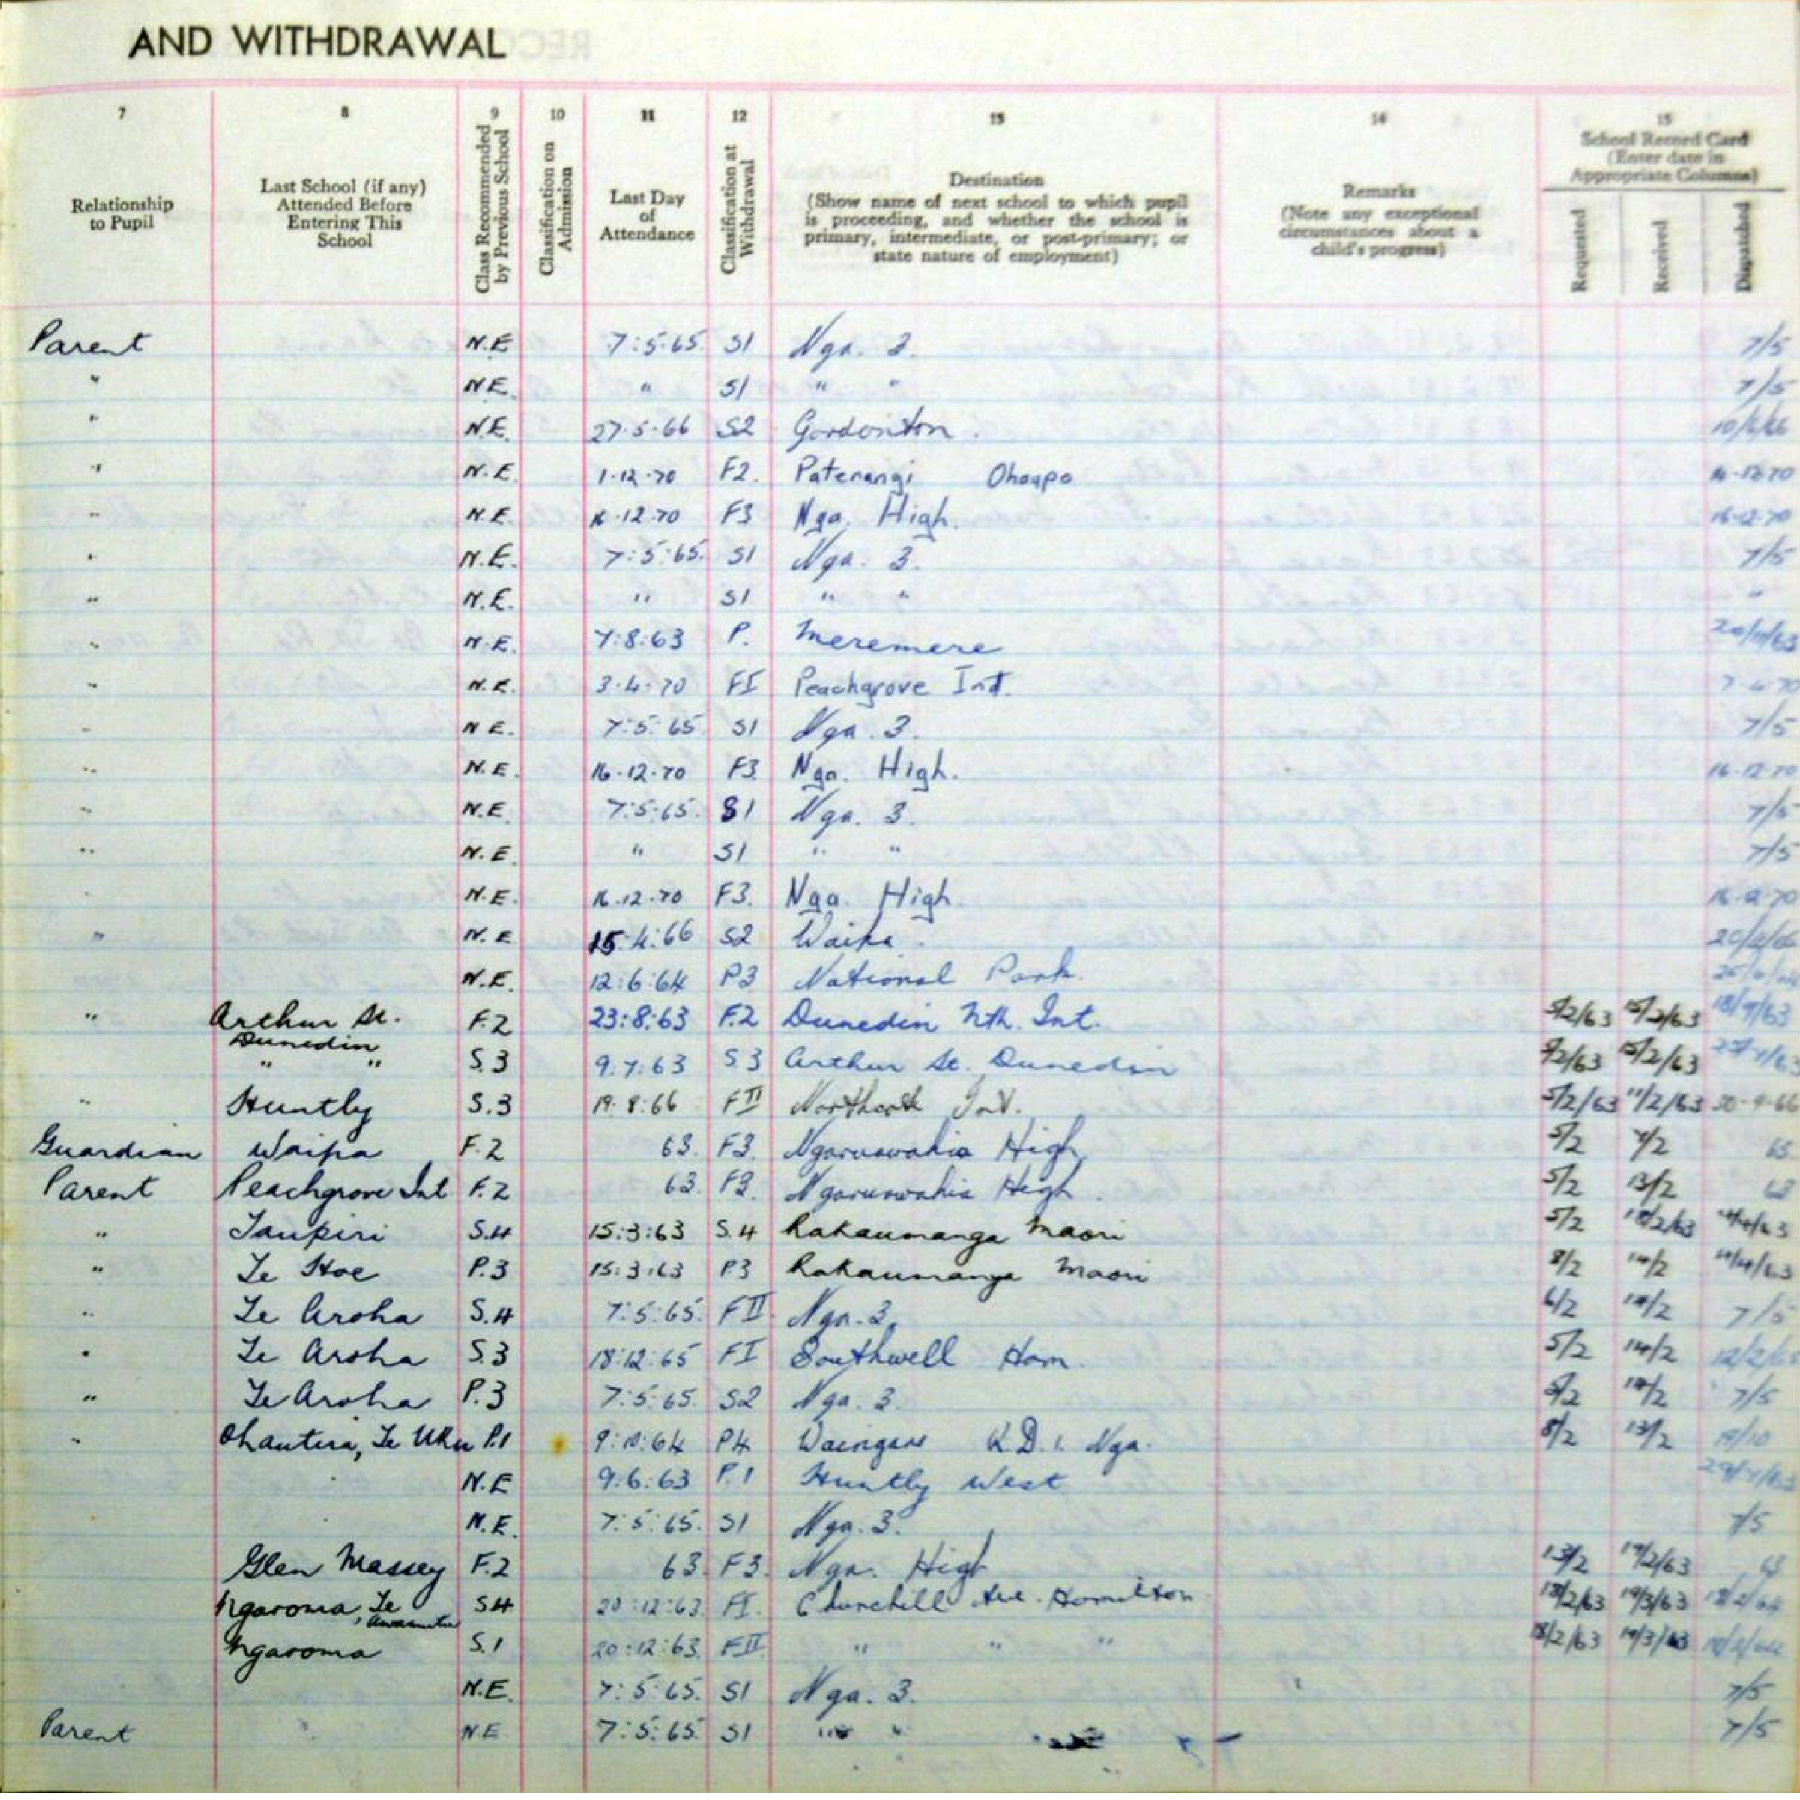 AND WITHDRAWAL
7 8 9 10 11 12 13 14 15
Relationship to Pupil
Last School (if any) Attended Before Entering This School
Class Recommended by Previous School
Classification on Admission
Last Day of Attendance
Classification at Withdrawal
Destination (Show name of next school to which pupil is proceeding, and whether the school is primary, intermediate, or post-primary; or state nature of employment)
Remarks (Note any exceptional circumstances about a child's progress)
School Record Card (Enter date in Appropriate Columns)
Requested Received Dispatched
Parent N.E 7:5:65 S1 Nga. 3. 7/5
" N.E. " S1 " " 7/5
" N.E. 27·5·66 S2 Gordonton. 10/6/66
" N.E. 1·12·70 F2. Paterangi Ohaupo 16·12·70
" N.E. 16·12·70 F3 Nga. High. 16·12·70
" N.E. 7:5:65. S1 Nga. 3. 7/5
" N.E. " S1 " " "
" N.E. 7:8:63 P. Meremere 20/11/63
" N.E. 3·4·70 FI Peachgrove Int. 7·4·70
" N.E. 7:5:65 S1 Nga. 3. 7/5
" N.E. 16·12·70 F3 Nga. High. 16·12·70
" N.E. 7:5:65. S1 Nga. 3. 7/5
" N.E. " S1 " " 7/5
" N.E. 16·12·70 F3. Nga. High. 16·12·70
" N.E 15:4:66 S2 Waipa. 20/4/66
N.E. 12:6:64 P3 National Park.
" Arthur St. Dunedin F.2 23:8:63 F.2 Dunedin Nth. Int. 5/2/63 15/2/63 18/9/63
" " S.3 9:7:63 S3 Arthur St. Dunedin 5/2/63 15/2/63
" Huntly S.3 19:8:66 FII Northcote Int. 5/2/63 11/2/63 30-9-66
Guardian Waipa F.2 63. F3. Ngaruawahia High 5/2 7/2 63
Parent Peachgrove Int F.2 63. F3. Ngaruawahia High. 5/2 13/2 63
" Taupiri S.4 15:3:63 S.4 Rakaumanga Maori 5/2 18/2/63 4/4/63
" Te Hoe P.3 15:3:63 P3 Rakaumanga Maori 8/2 14/2 4/4/63
" Te Aroha S.4 7:5:65. FII. Nga. 3. 6/2 14/2 7/5
" Te Aroha S.3 18:12:65 FI Southwell Ham. 5/2 14/2
" Te Aroha P.3 7:5:65. S2 Nga. 3. 5/2 14/2 7/5
" Ohautira, Te Uku P.1 9:10:64 P4 Waingaro R.D.1. Nga. 8/2 13/2 19/10
N.E 9:6:63 P.1 Huntly West
N.E. 7:5:65. S1 Nga. 3. 7/5
Glen Massey F.2 63. F3. Nga. High 13/2 19/2/63 63
Ngaroma, Te Awamutu S4 20:12:63. FI. Churchill Ave. Hamilton 18/2/63 19/3/63
Ngaroma S.1 20:12:63. FII " " " 18/2/63 19/3/63
N.E. 7:5:65. S1 Nga. 3. 7/5
Parent N.E 7:5:65. S1 " " 7/5